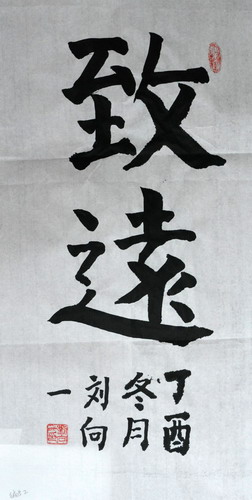 致遠
丁酉
冬月
刘向
一